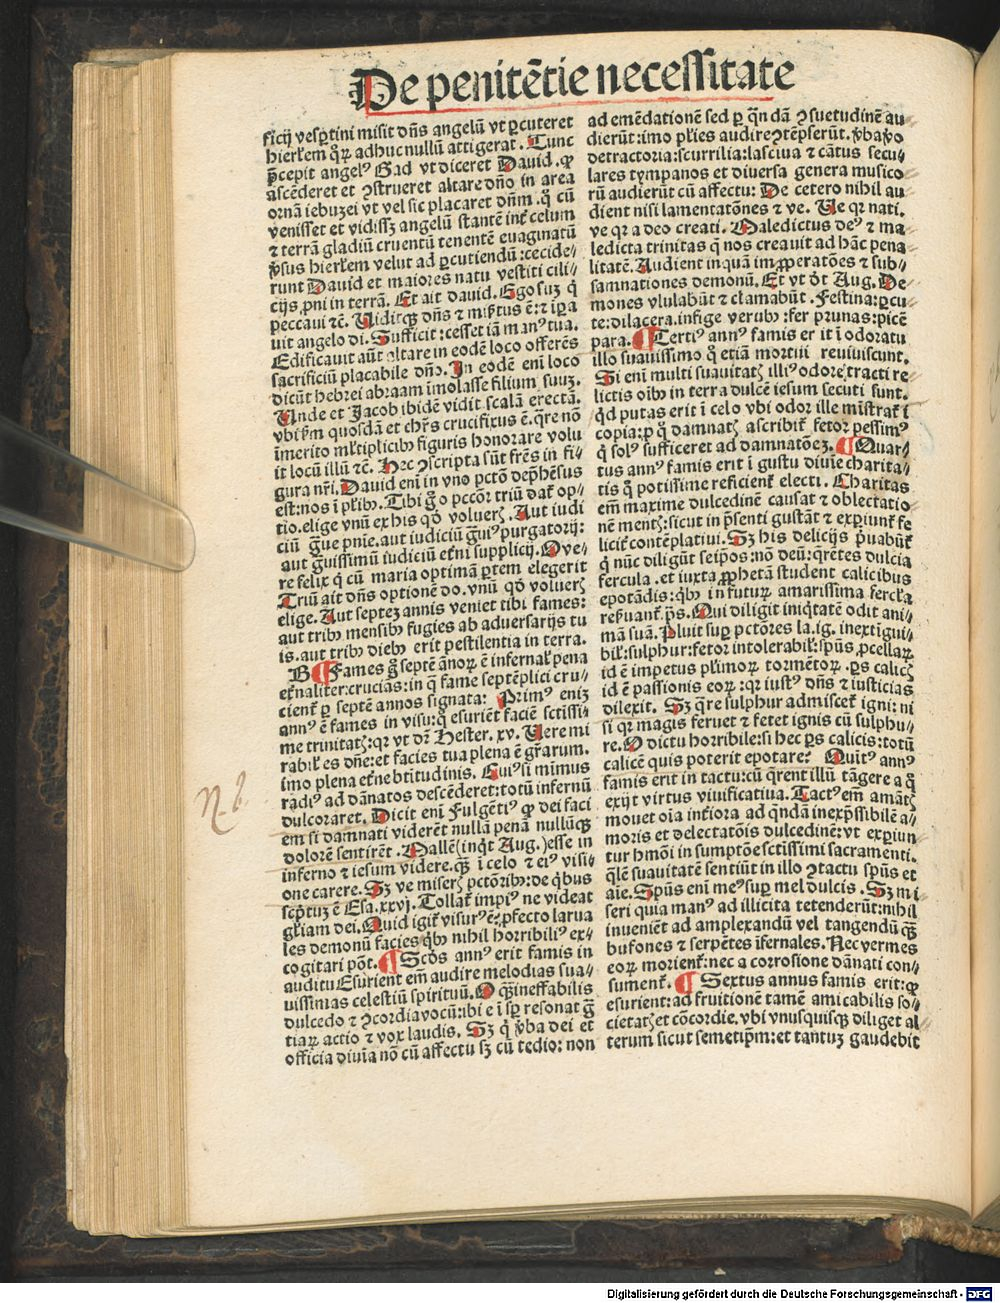 De penitẽtie necessitate
ficij vespertini misit dñs angelũ vt ꝑcuteret
hierłem q̃ꝝ adhuc nullũ attigerat. Tunc
p̃cepit angelꝰ Gad vt diceret Dauid. ꝙ
ascẽderet et ꝯstrueret altare dño in area
ornã iebuzei vt vel sic placaret dñm. ꝗ cũ
venisset et vidissꝫ angelũ stantẽ int̃ celum
⁊ terrã gladiũ cruentũ tenentẽ euaginatũ
ꝟsus hierłem velut ad ꝑcutiendũ: cecide⸗
runt Dauid et maiores natu vestiti cili⸗
cijs, ꝓni in terrã. Et ait dauid. Ego suꝫ q̇
peccaui ⁊c̃. Uiditqꝫ dñs ⁊ miẜtus ẽ: ⁊ ip̃a
uit angelo di. Sufficit: cesset iã manꝰ tua.
Edificauit aũt altare in eodẽ loco offerẽs
sacrificiũ placabile dño. In eodẽ eni loco
dicũt hebrei abraam ĩmolasse filium suuꝫ.
Unde et Jacob ibidẽ vidit scalã erectã.
vbi ẜm quosdã et chr̃s crucifixus ẽ. q̃re nõ
ĩmerito mł̃tiplicibꝰ figuris honorare volu
it locũ illũ ⁊c̃. Hec ꝯscripta sũt fr̃es in fi⸗
gura nr̃i. Dauid eni in vno pctõ dep̃hẽsus
est: nos ĩ pł̃ibꝰ. Tibi g̊ o pccõr triũ dat̃ op⸗
tio. elige vnũ ex his qď voluerꝭ. Aut iudi
ciũ g̃ue pnie. aut iudiciũ g̃uiꝰ purgatorij:
aut g̃uissimũ iudiciũ et̃ni supplicij. O ve⸗
re felix q̇ cũ maria optimã ꝑtem elegerit
Triũ ait dñs optionẽ do. vnũ qď volueris
elige. Aut septeꝫ annis veniet tibi fames:
aut tribꝰ mensibꝰ fugies ab aduersarijs tu
is. aut tribꝰ diebꝰ erit pestilentia in terra.
B ¶ Fames g̊ septẽ ãnoꝝ ẽ infernał pena
et̃naliter: crucias: in q̃ fame septẽplici cru⸗
cient̃ ꝑ septẽ annos signata: Primꝰ eniꝫ
annꝰ ẽ fames in visu: q̇ esuriẽt faciẽ sctĩssi⸗
me trinitatꝭ: qꝛ vt dr̃ Hester. xv. Uere mi
rabił es dñe: et facies tua plena ẽ gr̃arum.
imo plena et̃ne btĩtudinis. Cuiꝰ si mĩmus
radiꝰ ad dãnatos descẽderet: totũ infernũ
dulcoraret. Dicit eni Fulgẽtiꝰ ꝙ dei faci
em si damnati viderẽt nullã penã nullũqꝫ
dolorẽ sentirẽt. Mallẽ (inq̇t Aug.) esse in
inferno ⁊ iesum videre. q̃ꝫ ĩ celo ⁊ eiꝰ visi⸗
one carere. Sꝫ ve miserꝭ pctõribꝰ: de q̇bus
scp̃tuꝫ ẽ Esa. xxvj. Tollat̃ impiꝰ ne videat
gł̃iam dei. Quid igit̃ visurꝰ ẽ: ꝓfecto larua
les demonũ facies q̇bꝰ nihil horribiliꝰ ex⸗
cogitari põt. ¶ Scďs annꝰ erit famis in
auditu Esurient em̃ audire melodias sua⸗
uissimas celestiũ spirituũ. O q̃ꝫ ineffabilis
dulcedo ⁊ ꝯcordia vocũ: ibi e ĩ sꝑ resonat g̃
tiaꝝ actio ⁊ vox laudis. Sꝫ q̇ ꝟba dei et
officia diuĩa nõ cũ affectu sꝫ cũ tedio: non
ad emẽdationẽ sed ꝑ q̃ndã ꝯsuetudinẽ au⸗
dierũt: imo pł̃ies audire ꝯtẽpserũt. ꝟba ꝟo
detractoria: scurrilia: lasciua ⁊ cãtus secu⸗
lares tympanos et diuersa genera musico⸗
rũ audierũt cũ affectu: De cetero nihil au⸗
dient nisi lamentatõnes ⁊ ve. Ue qꝛ nati.
ve qꝛ a deo creati. Maledictus deꝰ ⁊ ma⸗
ledicta trinitas q̃ nos creauit ad hãc pena⸗
litatẽ. Audient inquã imꝓperatões ⁊ sub⸗
sannationes demonũ. Et vt ďt Aug. De⸗
mones vlulabũt ⁊ clamabũt. Festina: ꝑcu⸗
te: dilacera. infige verubꝰ: fer prunas: picẽ
para. ¶ Tertiꝰ annꝰ famis er it ĩ odoratu
illo suauissimo q̊ etiã mortui reuiuiscunt.
Si eni multi suauitatꝭ illiꝰ odore tracti re⸗
lictis oĩbꝰ in terra dulcẽ iesum secuti sunt.
qď putas erit ĩ celo vbi odor ille mĩstrat̃ ĩ
copia: ꝑ q̊ damnatꝭ ascribit̃ fetor pessimꝰ
q̇ solꝰ sufficeret ad damnatõeꝫ. ¶ Quar⸗
tus annꝰ famis erit ĩ gustu diuĩe charita⸗
tis q̊ potissime reficient̃ electi. Charitas
em̃ maxime dulcedinẽ causat ⁊ oblectatio⸗
nẽ mentꝭ: sicut in p̃senti gustãt ⁊ exꝑiunt̃ fe
licit̃ contẽplatiui. Sꝫ his delicijs p̃uabũt̃
q̇ nũc diligũt seip̃os: nõ deũ: q̃rẽtes dulcia
fercula. et iuxta ꝓphetã student calicibus
epotãdis: q̇bꝰ in futuꝝ amarissima fercła
reẜuant̃. p̃s. Qui diligit iniq̇tatẽ odit ani⸗
mã suã. Pluit suꝑ pctõres la. ig. inextĩgui⸗
bił: sulphur: fetor intolerabił: spũs, ꝓcellaꝝ
id ẽ impetus pł̃imoꝝ tormẽtoꝝ. ꝑs calicꝭ
id ẽ passionis eoꝝ: qꝛ iustꝰ dñs ⁊ iusticias
dilexit. Sꝫ q̃re sulphur admiscet̃ igni: ni
si qꝛ magis feruet ⁊ fetet ignis cũ sulphu⸗
re. O dictu horribile: si hec ꝑs calicis: totũ
calicẽ quis poterit epotare? Quĩtꝰ annꝰ
famis erit in tactu: cũ q̃rent illũ tãgere a q̊
exijt virtus viuificatiua. Tactꝰ em̃ amãtꝭ
mouet oĩa int̃iora ad q̃ndã inexp̃ssibilẽ a⸗
moris et delectatõis dulcedinẽ: vt exꝑiun⸗
tur hmõi in sumptõe sctĩssimi sacramenti.
q̃lẽ suauitatẽ sentiũt in illo ꝯtactu spũs et
aĩe. Spũs eni meꝰ suꝑ mel dulcis. Sꝫ mi⸗
seri quia manꝰ ad illicita tetenderũt: nihil
inueniẽt ad amplexandũ vel tangendũ q̃ꝫ
bufones ⁊ serpẽtes ĩfernales. Nec vermes
eoꝝ morient̃: nec a corrosione dãnati con⸗
sument̃. ¶ Sextus annus famis erit: ꝙ
esurient: ad fruitionẽ tamẽ amicabilis so⸗
cietatꝭ et cõcordie. vbi vnusquisqꝫ diliget al⸗
terum sicut semetip̃m: et tantuꝫ gaudebit
N. b.
Digitalisierung gefördert durch die Deutsche Forschungsgemeinschaft - DFG